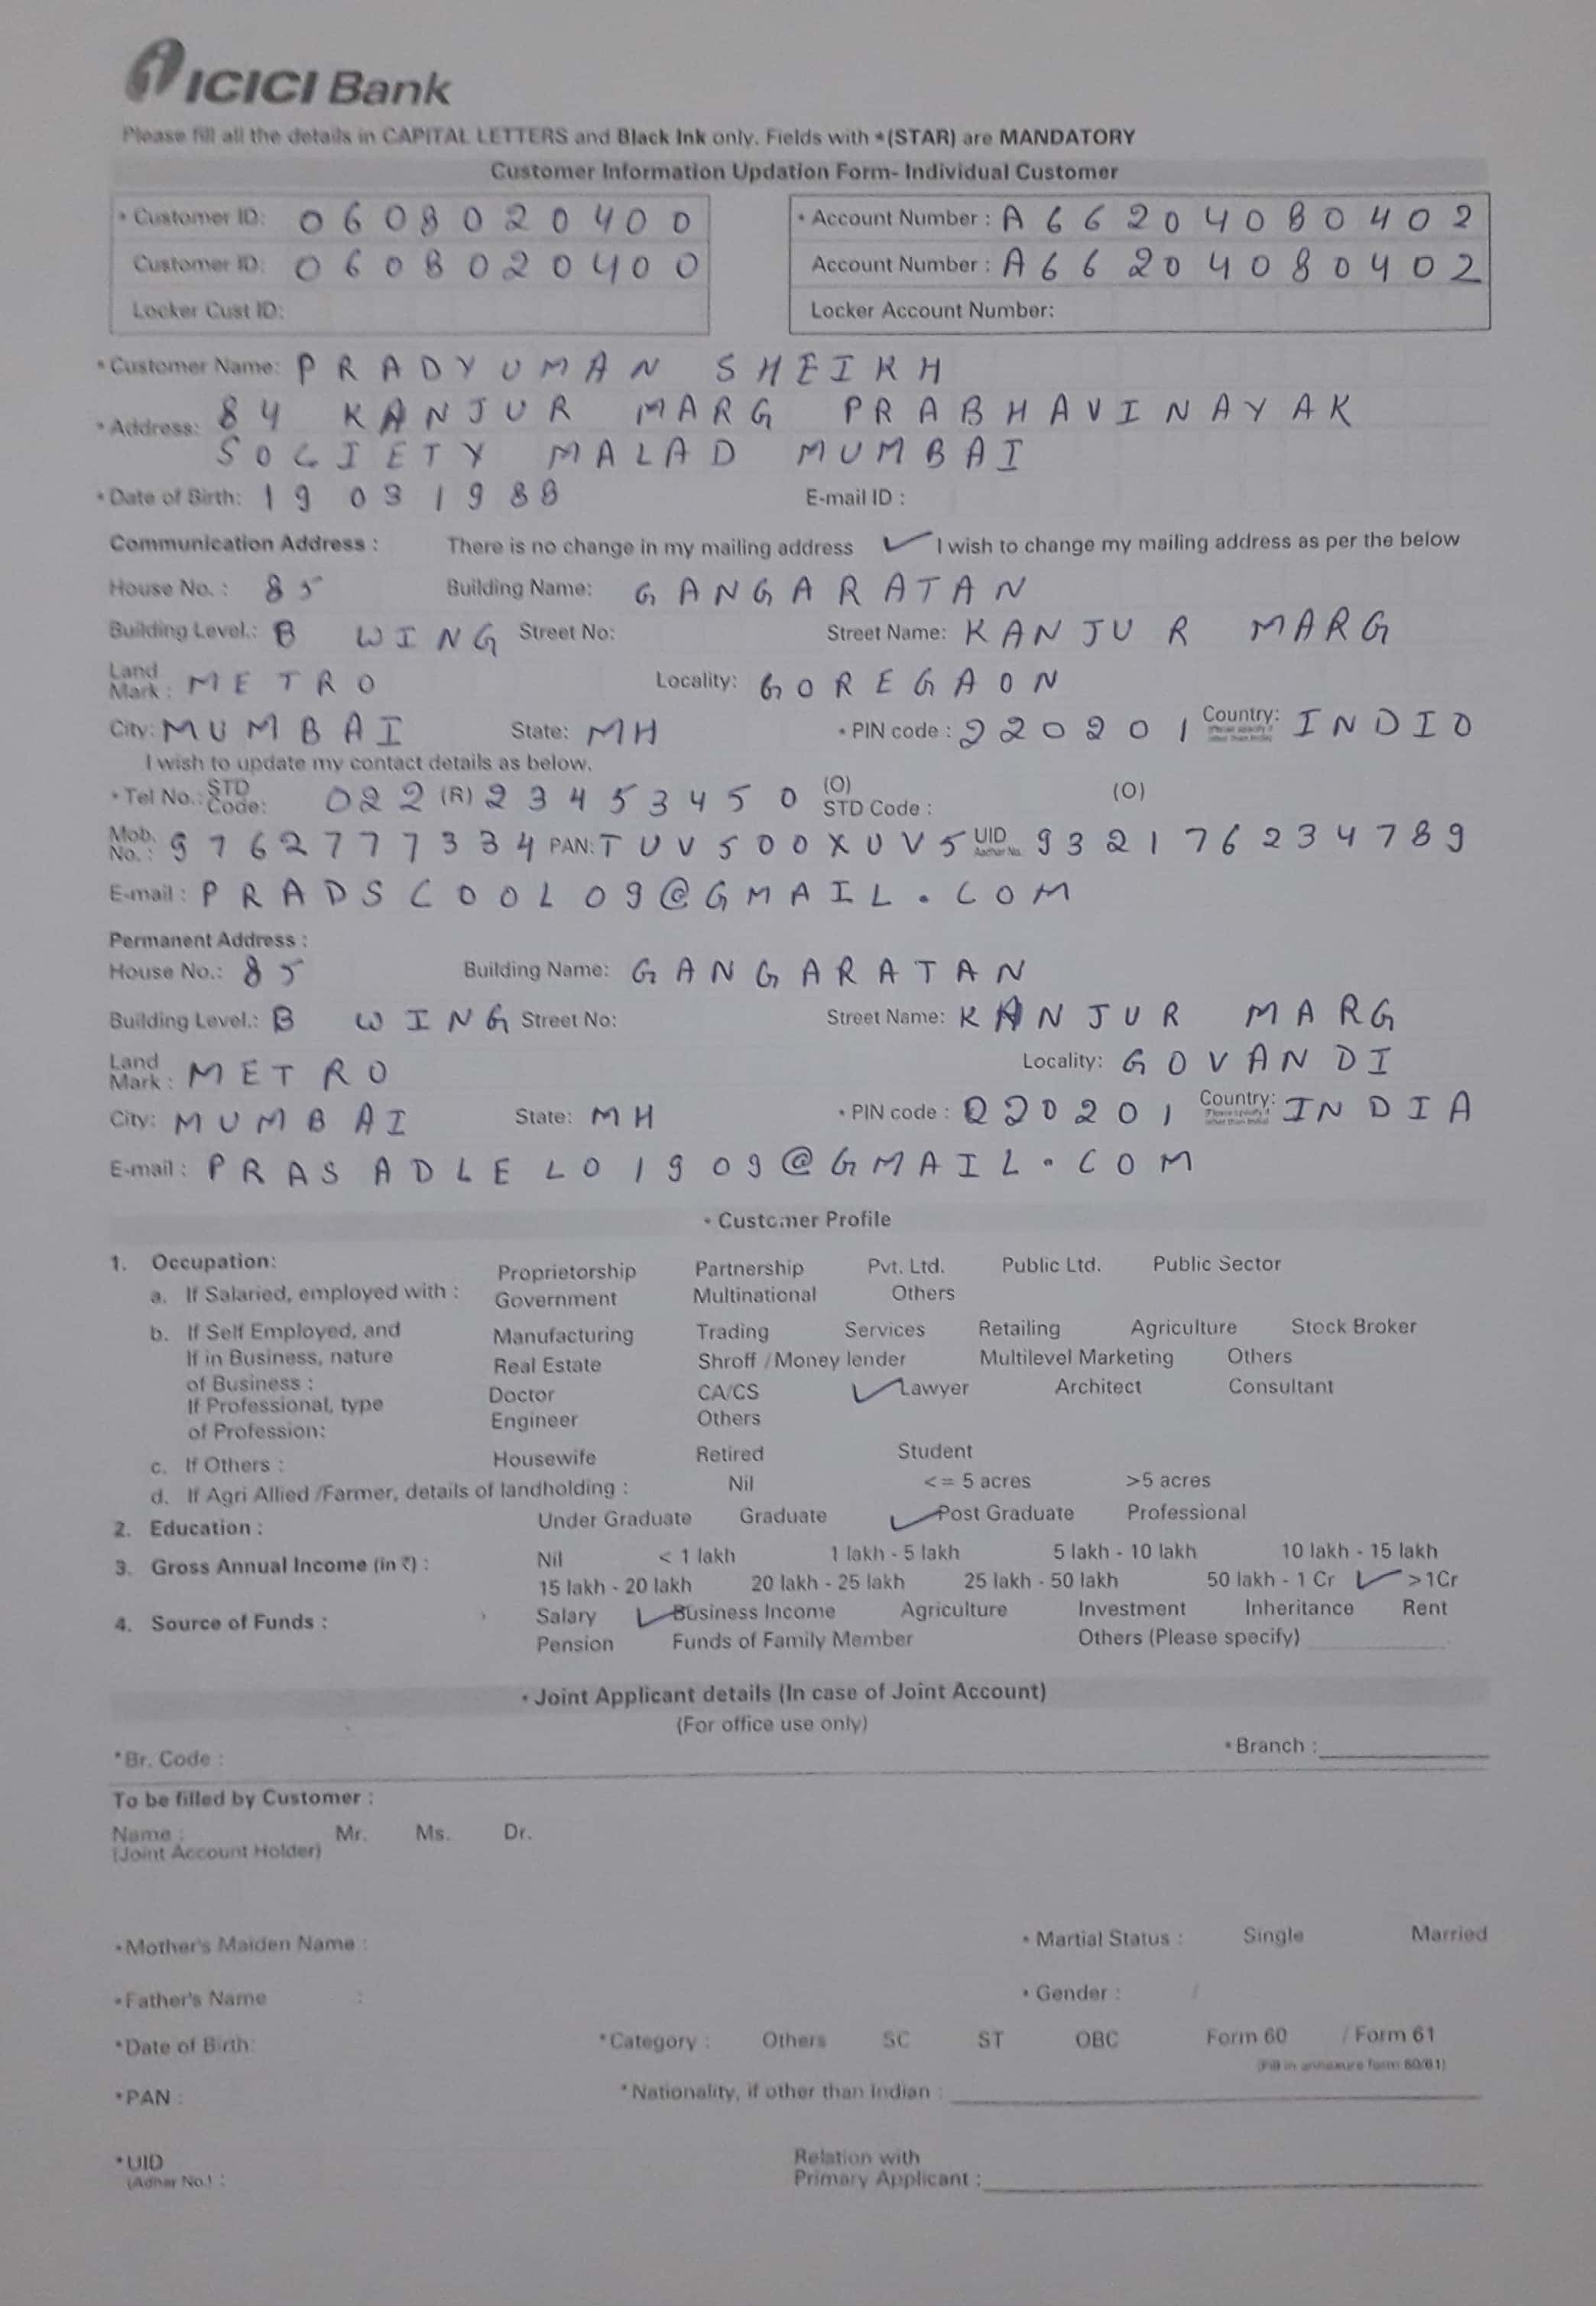 ICICI Bank
Please fill all the details in CAPITAL LETTERS and Black Ink only. Fields with *(STAR) are MANDATORY
Customer Information Updation Form- Individual Customer
* Customer ID: 0608020400 * Account Number : A66204080402
Customer ID: 0608020400 Account Number : A66204080402
Locker Cust ID: Locker Account Number:
* Customer Name: PRADYUMAN SHEIKH
* Address: 84 KANJUR MARG PRABHAVINAYAK
SOCIETY MALAD MUMBAI
* Date of Birth: 19031988 E-mail ID :
Communication Address : There is no change in my mailing address ✓ I wish to change my mailing address as per the below
House No. : 85 Building Name: GANGARATAN
Building Level.: B WING Street No: Street Name: KANJUR MARG
Land Mark : METRO Locality: GOREGAON
City: MUMBAI State: MH * PIN code : 220201 Country: INDIO
I wish to update my contact details as below.
* Tel No.: STD Code: 022 (R) 23453450 (O) STD Code : (O)
Mob. No. : 9762777334 PAN: TUV500XUV5 UID Aadhar No. 932176234789
E-mail : PRADSCOOL09@GMAIL.COM
Permanent Address :
House No.: 85 Building Name: GANGARATAN
Building Level.: B WING Street No: Street Name: KANJUR MARG
Land Mark : METRO Locality: GOVANDI
City: MUMBAI State: MH * PIN code : 220201 Country: INDIA
E-mail : PRASADLELO1909@GMAIL.COM
* Customer Profile
1. Occupation:
a. If Salaried, employed with : Proprietorship Partnership Pvt. Ltd. Public Ltd. Public Sector
Government Multinational Others
b. If Self Employed, and Manufacturing Trading Services Retailing Agriculture Stock Broker
If in Business, nature Real Estate Shroff /Money lender Multilevel Marketing Others
of Business :
If Professional, type Doctor CA/CS ✓ Lawyer Architect Consultant
of Profession: Engineer Others
c. If Others : Housewife Retired Student
d. If Agri Allied /Farmer, details of landholding : Nil <= 5 acres >5 acres
2. Education : Under Graduate Graduate ✓ Post Graduate Professional
3. Gross Annual Income (in ₹) : Nil < 1 lakh 1 lakh - 5 lakh 5 lakh - 10 lakh 10 lakh - 15 lakh
15 lakh - 20 lakh 20 lakh - 25 lakh 25 lakh - 50 lakh 50 lakh - 1 Cr ✓ >1Cr
4. Source of Funds : Salary ✓ Business Income Agriculture Investment Inheritance Rent
Pension Funds of Family Member Others (Please specify)
* Joint Applicant details (In case of Joint Account)
(For office use only)
*Br. Code : * Branch :
To be filled by Customer :
Name : Mr. Ms. Dr.
(Joint Account Holder)
*Mother's Maiden Name : * Martial Status : Single Married
*Father's Name : * Gender : /
*Date of Birth: *Category : Others SC ST OBC Form 60 / Form 61
(Fill in annexure form 60/61)
*PAN : * Nationality, if other than Indian :
*UID Relation with
(Adhar No.) : Primary Applicant :